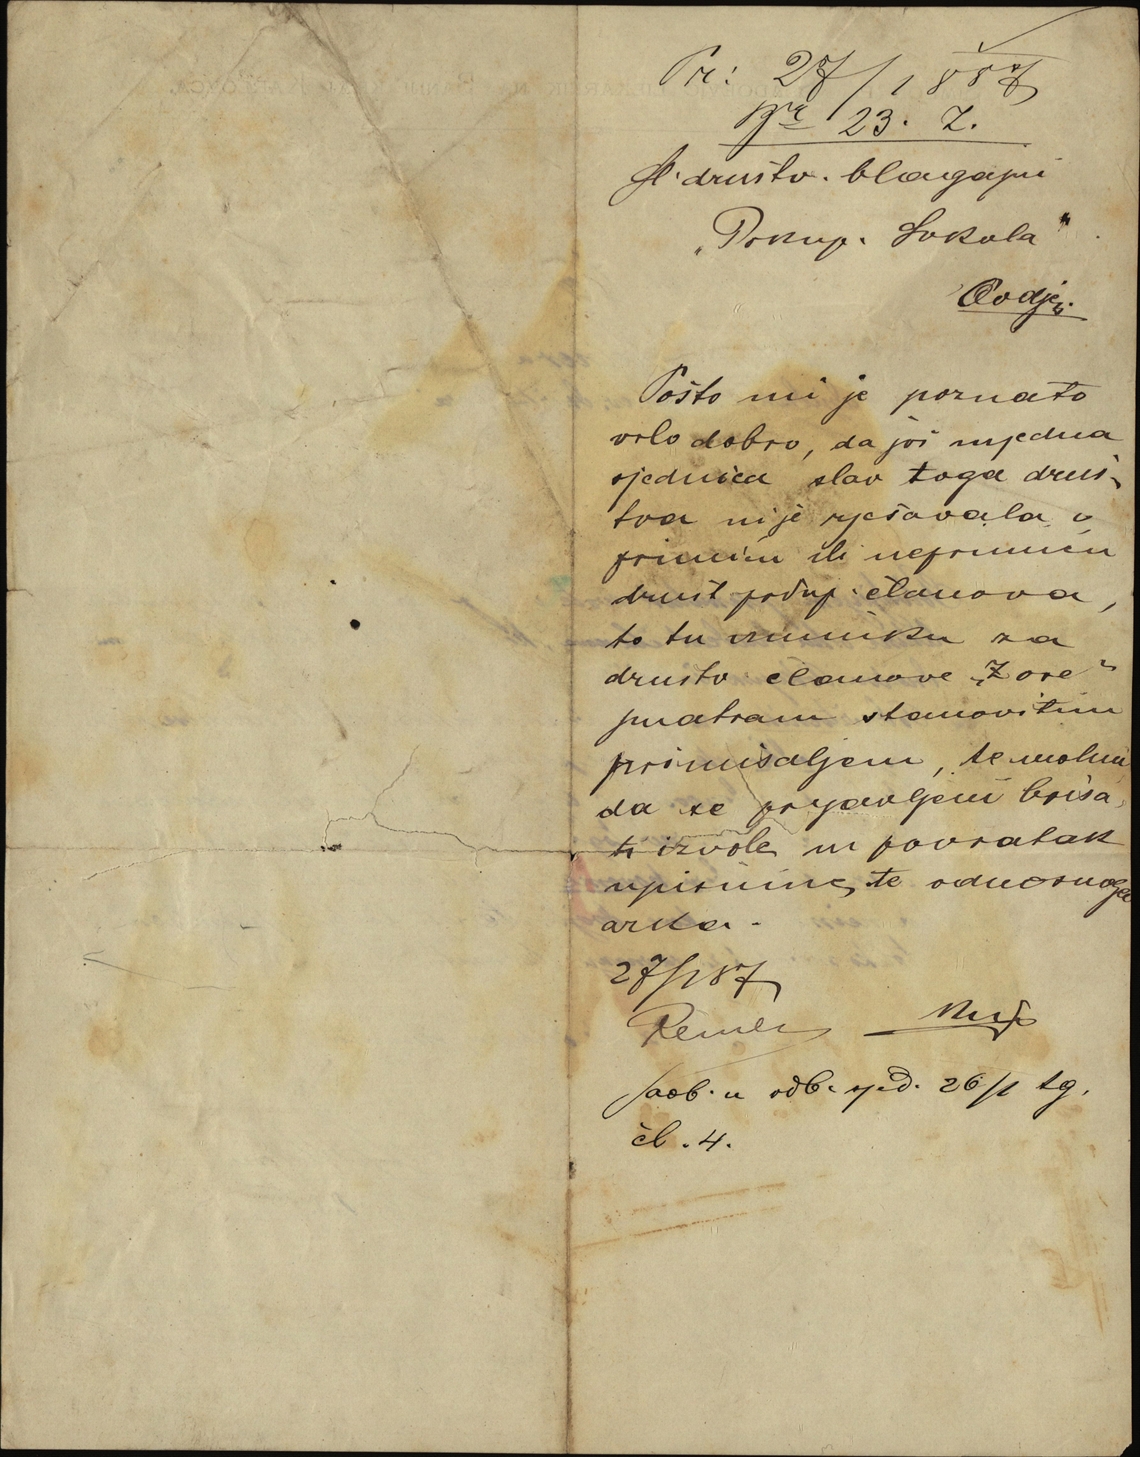 Pr: 27/1 887
Br 23. Z.
Sl. društv. blagajni
„Pokup. Sokola"
Ovdje.
Pošto mi je poznato
vrlo dobro, da još nijedna
sjednica slav toga druš-
tva nije rješavala o
primim ili neprimim
družt podup. članova,
to tu
za
društv članove „Zore"
smatram stanovitim
primisaljem, te molim
da se prijavljeni brisa
ti izvole uz povratak
upisnine, te odnosnoga
arka.
27/1 87
saob. u odb. sjed. 26/1 tg.
čl. 4.